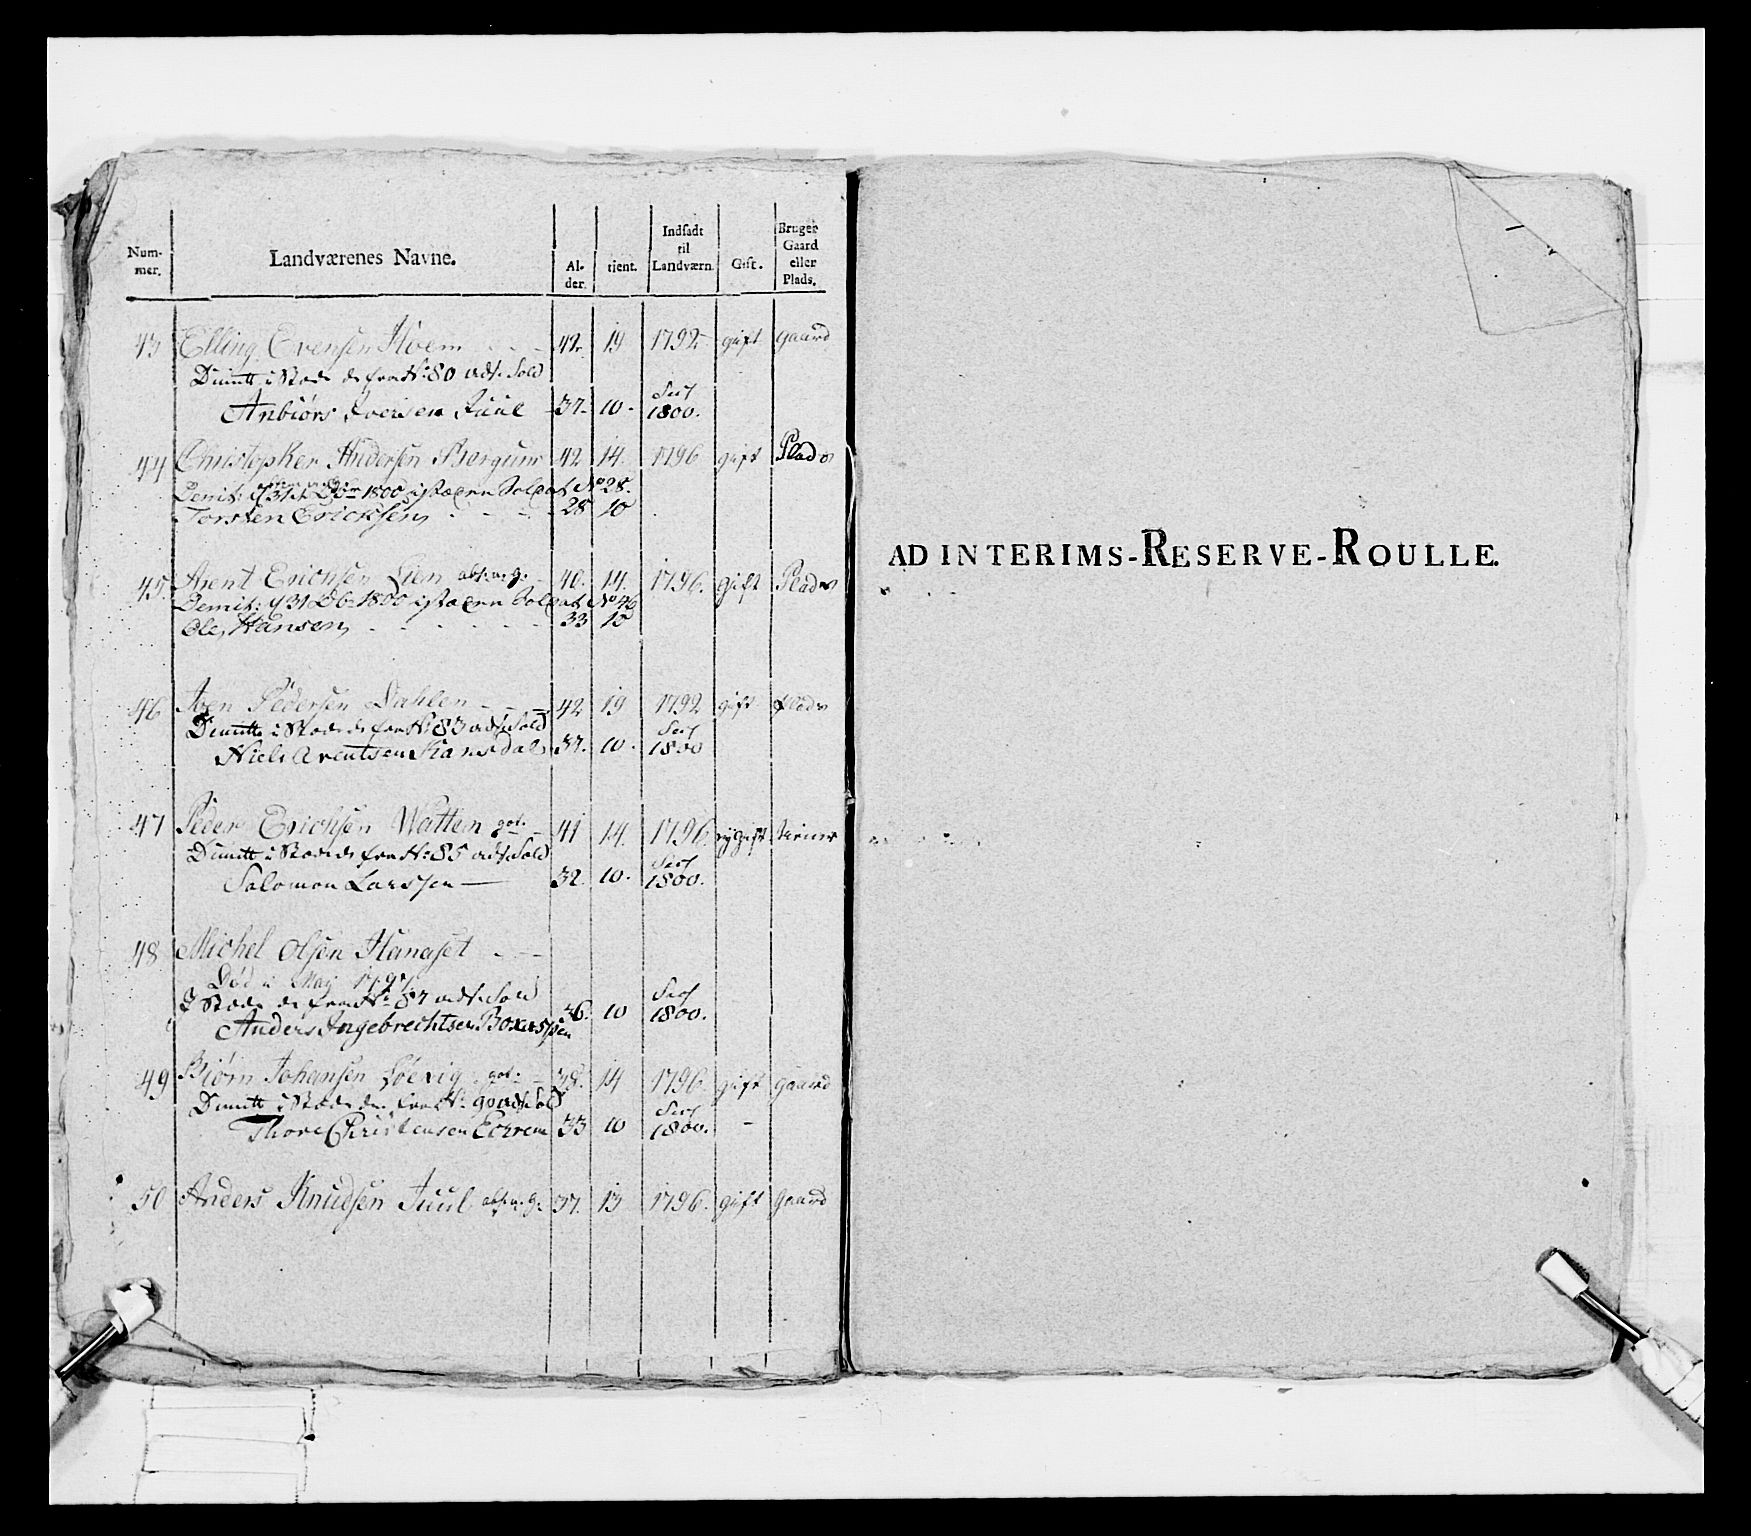 Num-mer. Landværenes Navne. Al-der. tient. Indsadt til Landværn. Gift. Bruger Gaard eller Plads.
43 Elling Evensen Hoem - - - 42. 19 1792 gift gaard
Dimitt i Stæde de fra No 80 udt. Sold
Anbiørs Iversen Juul 37. 10. 1800.
44 Christopher Andersen Bergum 42 14. 1796 gift Plads
Demit: d 31t Db 1800 istæden Soldat No 28.
Torsten Ericksen 28 10
45. Arent Erichsen Lien 40. 14. 1796. gift Plads
Demit: d 31 Db 1800 istæden Soldat No 46
Ole Hansen 33 10
46 Joen Pedersen Dahlen 42 19 1792 gift plads
Dimitt i Stæde de fra No 83 udt. Sold
Niels Arentsen Ramsdal 37. 10. 1800
47 Peder Erichsen Watten got. 41 14. 1796. ugift
Dimitt i Stæde de fra No 85 udt. Sold
Salomon Larssen 32. 10. 1800.
48 Michel Olsen Hanaset - - -
Død i May 1797.
I Stæde de fra No 87 udt. Sold
Anders Ingebrechtsen 36. 10 1800.
49 Biørn Johansen got. 38. 14 1796 gift gaard
Dimitt i Stæde de fra No 90 udt. Sold
Thore Christensen 33 10 1800. -
50 Anders Knudsen Juul 37. 13 1796. gift gaard
AD INTERIMS-RESERVE-ROULLE.